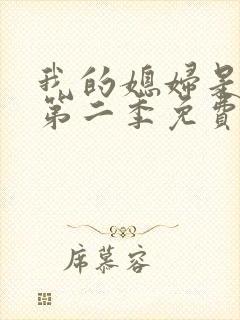 我的媳妇是
第二季免费
席慕容